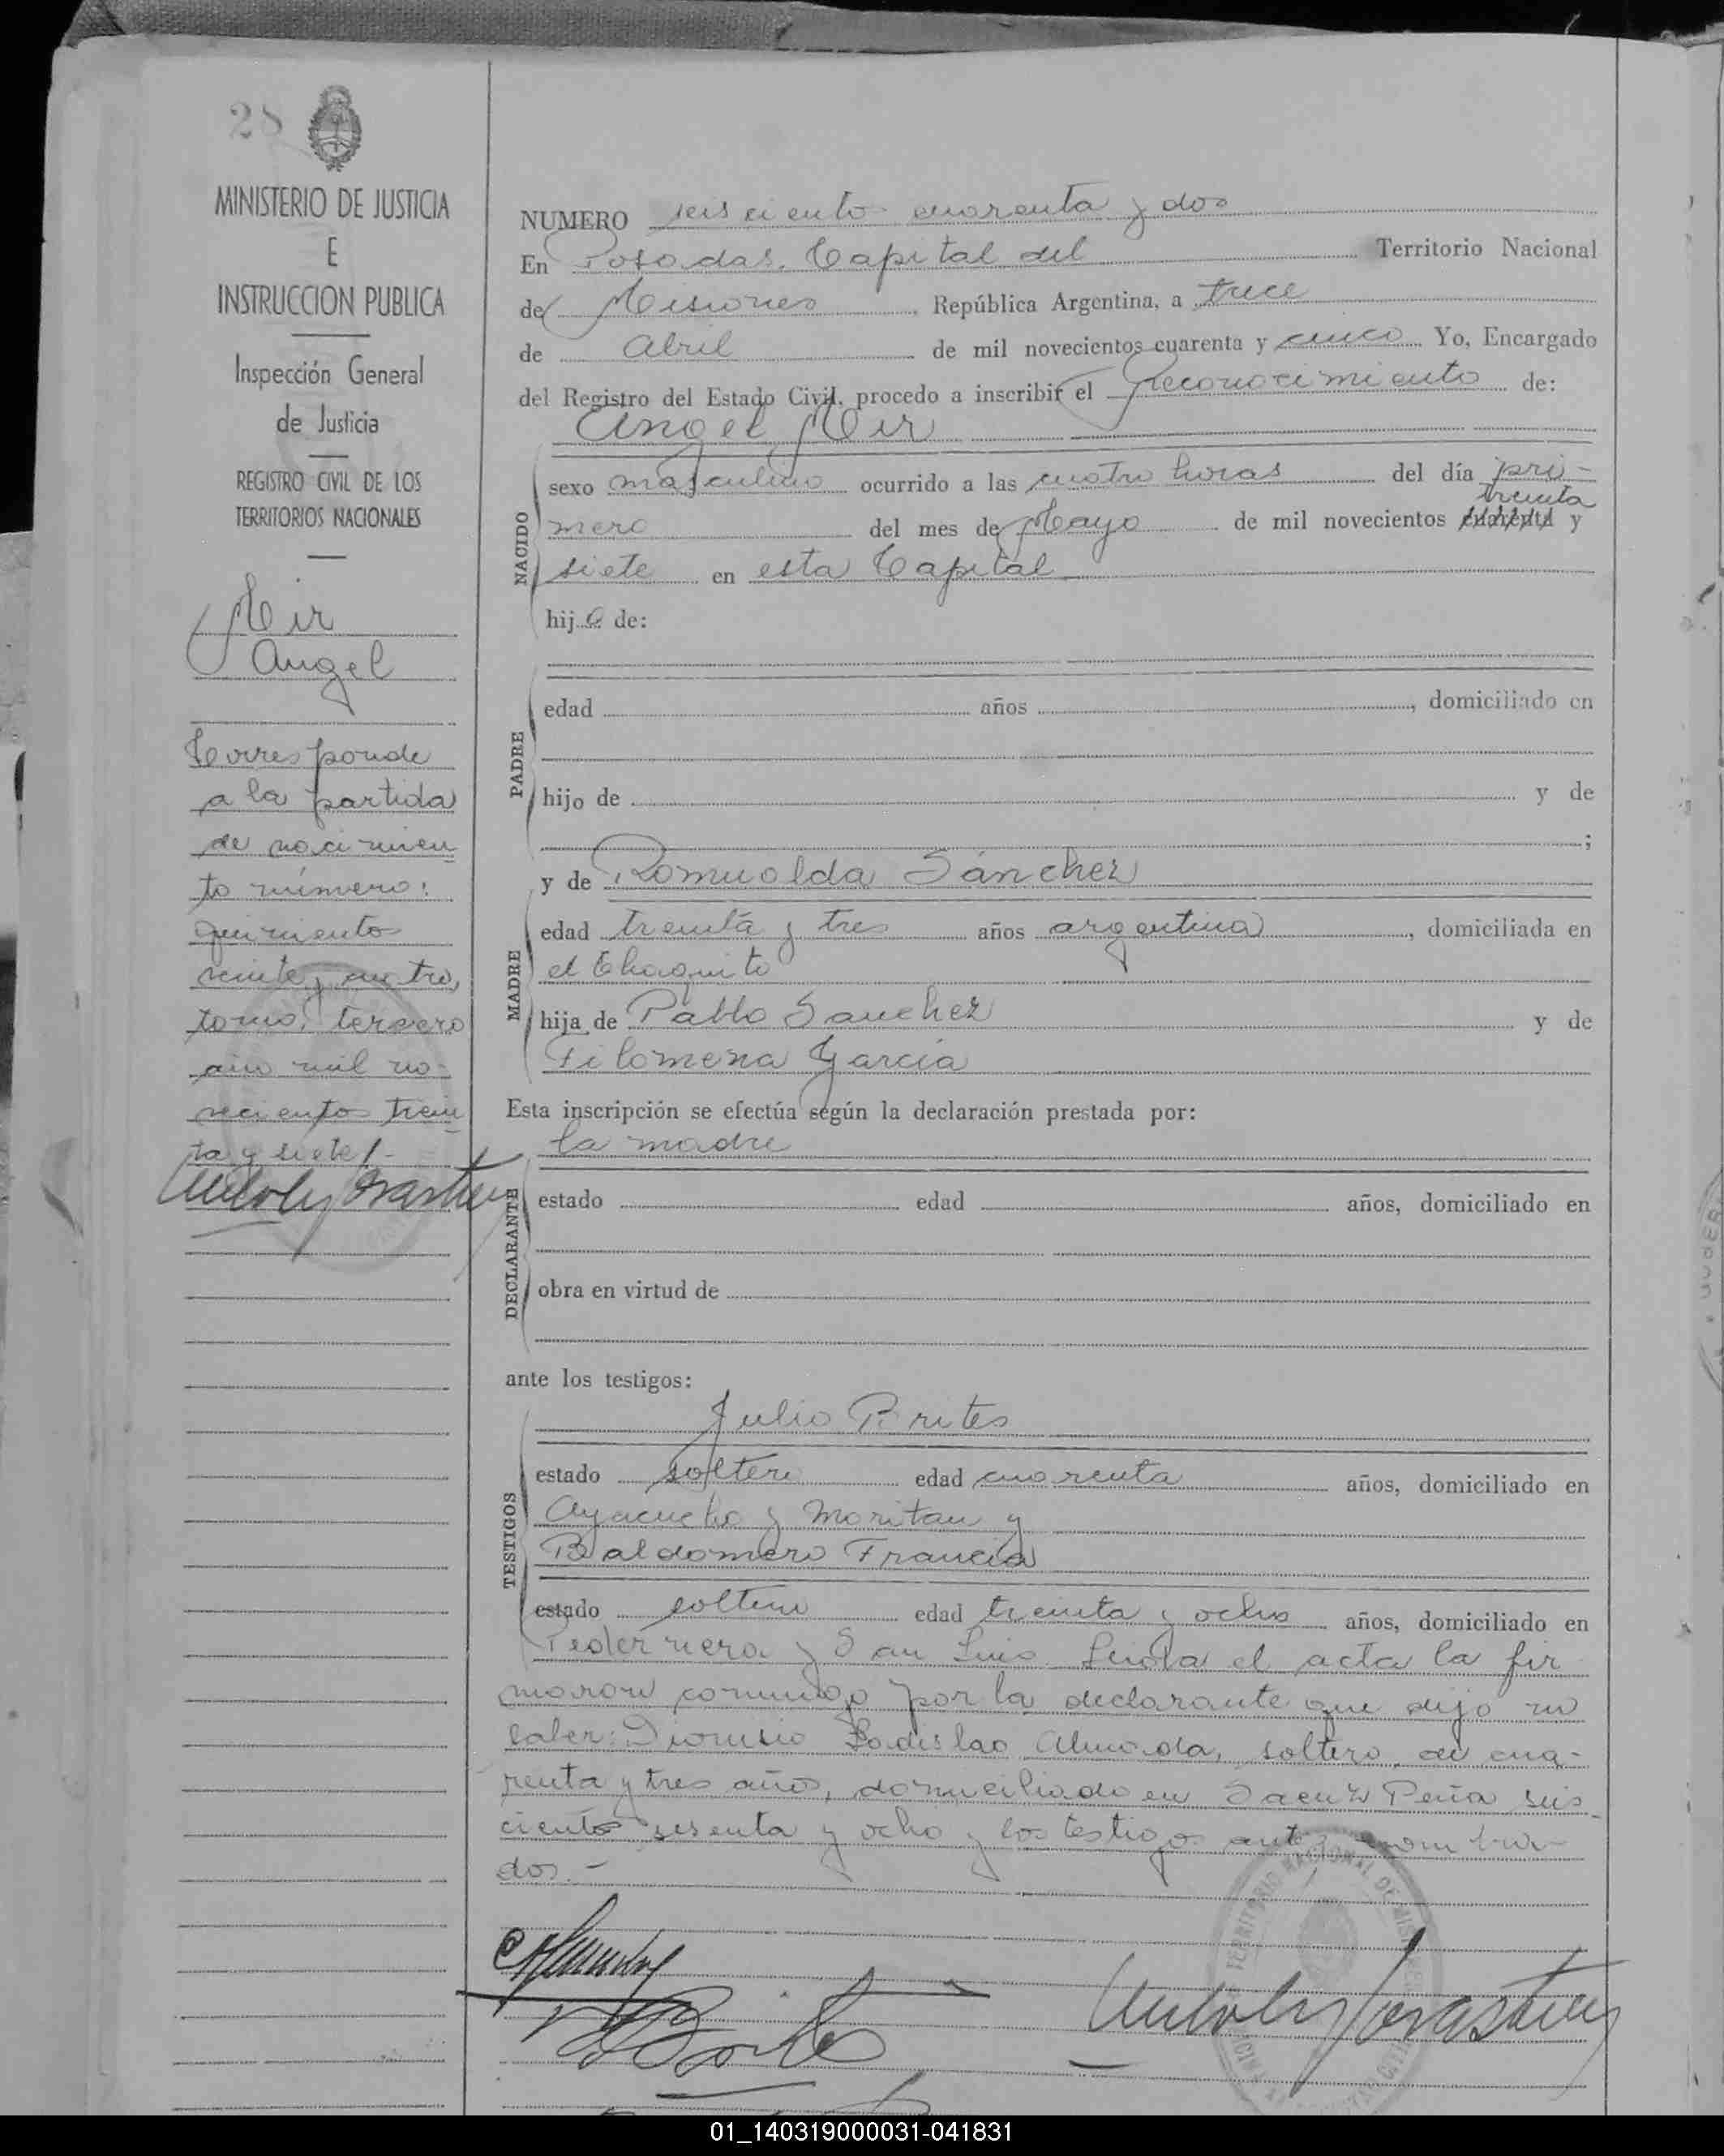 28
MINISTERIO DE JUSTICIA
E
INSTRUCCION PUBLICA
Inspección General
de Justicia
REGISTRO CIVIL DE LOS
TERRITORIOS NACIONALES
Mir
Angel
Corresponde
a la partida
de nacimien
to número:
quinientos
veinte y cuatro,
tomo, tercero
año mil no-
vecientos trein
ta y siete/-
NUMERO seis ciento cuarenta y dos
En Posadas. Capital del Territorio Nacional
de Misiones, República Argentina, a trece
de Abril de mil novecientos cuarenta y cinco Yo, Encargado
del Registro del Estado Civil, procedo a inscribir el Reconocimiento de:
Angel Mir
NACIDO
sexo masculino ocurrido a las cuatro horas del día pri-
treinta
mero del mes de Mayo de mil novecientos cuarenta y
siete en esta Capital
hijo de:
PADRE
edad años , domiciliado en
hijo de y de
;
y de Romualda Sánchez
MADRE
edad treinta y tres años argentina, domiciliada en
el Chaquito
hija de Pablo Sanchez y de
Filomena García
Esta inscripción se efectúa según la declaración prestada por:
la madre
DECLARANTE
estado edad años, domiciliado en
obra en virtud de
ante los testigos:
TESTIGOS
Julio Brites
estado soltero edad cuarenta años, domiciliado en
Ayacucho y Moritan y
Baldomero Francia
estado soltero edad treinta y ocho años, domiciliado en
Pedernera y San Luis. Leida el acta la fir
maron conmigo por la declarante que dijo no
saber: Dionisio Ladislao Almada, soltero, de cua-
renta y tres años, domiciliado en Saenz Peña seis-
ciento sesenta y ocho y los testigos antes nombra-
dos.-
01_140319000031-041831